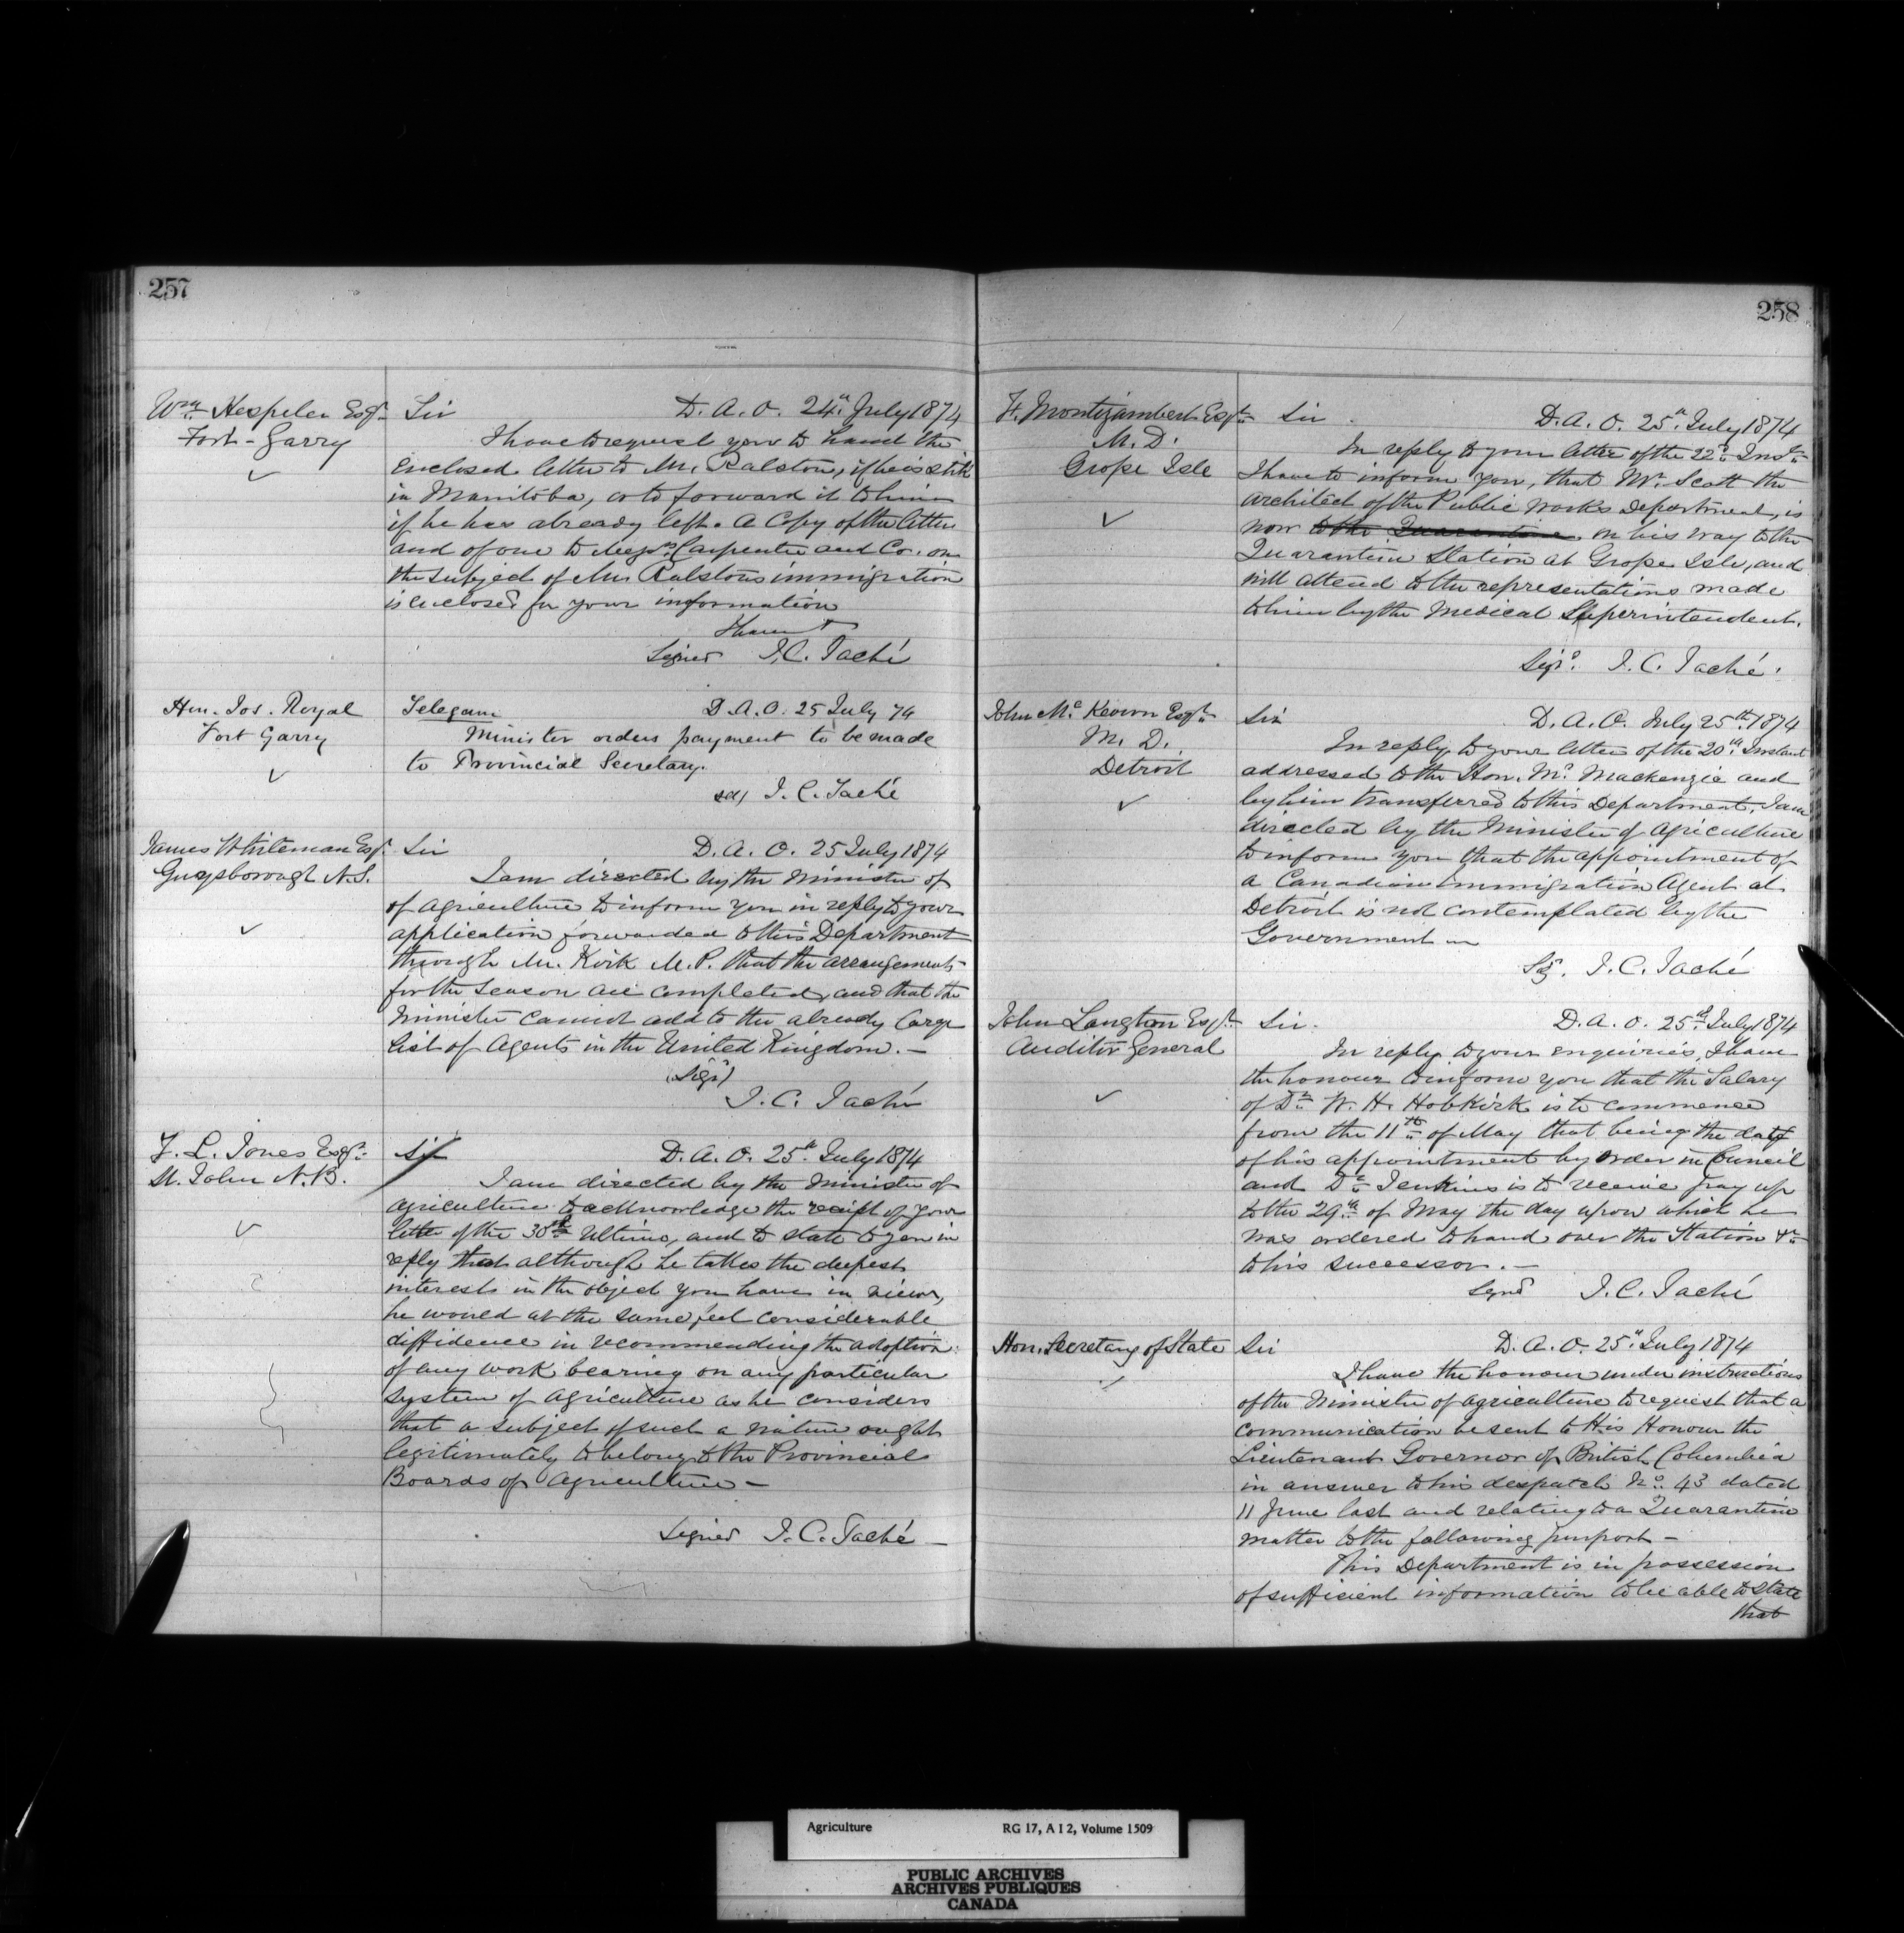 257
Wm. Hespeler Esqr.
Fort-Garry
Sir D. A. O. 24th July 1874
I have to request you to hand the
enclosed letter to Mr. Ralston, if he is still
in Manitoba, or to forward it to him
if he has already left. A Copy of the letter
and of one to Messrs. Carpenter and Co. on
the subject of Mr Ralstons immigration
is enclosed for your information
I have +
Signed J. C. Taché
Hon. Jos. Royal
Fort Garry
Telegam D. A. O. 25 July 74
Minister orders payment to be made
to Provincial Secretary.
sd/ J. C. Taché
James Whiteman Esqr.
Guysborough N.S.
Sir D. A. O. 25 July 1874
I am directed by the Minister of
of Agriculture to inform you in reply to your
application forwarded to this Department
through Mr. Kirk M.P. that the arrangements
for the Season are completed, and that the
Minister cannot add to the already large
list of Agents in the United Kingdom. —
(Sigd)
J. C. Taché
F. L. Jones Esqr.
St. John N.B.
Sir D. A. O. 25th July 1874
I am directed by the Minister of
Agriculture to acknowledge the receipt of your
letter of the 30th Ultimo, and to state to you in
reply that although he takes the deepest
interest in the object you have in view,
he would at the same feel considerable
diffidence in recommending the adoption
of any work bearing on any particular
system of Agriculture as he considers
that a subject of such a nature ought
legitimately to belong to the Provincial
Boards of Agriculture —
Signed J. C. Taché —
258
F. Montizambert Esqr.
M. D.
Grope Isle
Sir. D. A. O. 25th July 1874
In reply to your letter of the 22d Inst.
I have to inform you, that Mr. Scott the
architect of the Public Works Department, is
now to the Quarantine on his way to the
Quarantine Station at Grope Isle, and
will attend to the representations made
to him by the Medical Superintendent.
Sigd. J. C. Taché.
John Mc Keown Esqr.
M. D.
Detroit
Sir D. A. O. July 25th 1874
In reply to your letter of the 20th Instant
addressed to the Hon. Mr. Mackenzie and
by him transferred to this Department, I am
directed by the Minister of Agriculture
to inform you that the appointment of
a Canadian Immigration Agent at
Detroit is not contemplated by the
Government —
Sg. J. C. Taché
John Langton Esqr.
Auditor General
Sir. D. A. O. 25th July 1874
In reply to your enquiries, I have
the honour to inform you that the Salary
of Dr. W. H. Hobkirk is to commence
from the 11th of May that being the date
of his appointment by Order in Council
and Dr. Jenkins is to receive pay up
to the 29th of May the day upon which he
was ordered to hand over the Station &c
to his successor. —
Signd J. C. Taché
Hon. Secretary of State
Sir D. A. O. 25th July 1874
I have the honour under instructions
of the Minister of Agriculture to request that a
communication be sent to His Honour the
Lieutenant Governor of British Columbia
in answer to his despatch No. 43 dated
11 June last and relating to a Quarantine
matter to the following purport —
This Department is in possession
of sufficient information to be able to state
that
Agriculture RG 17, A I 2, Volume 1509
PUBLIC ARCHIVES
ARCHIVES PUBLIQUES
CANADA